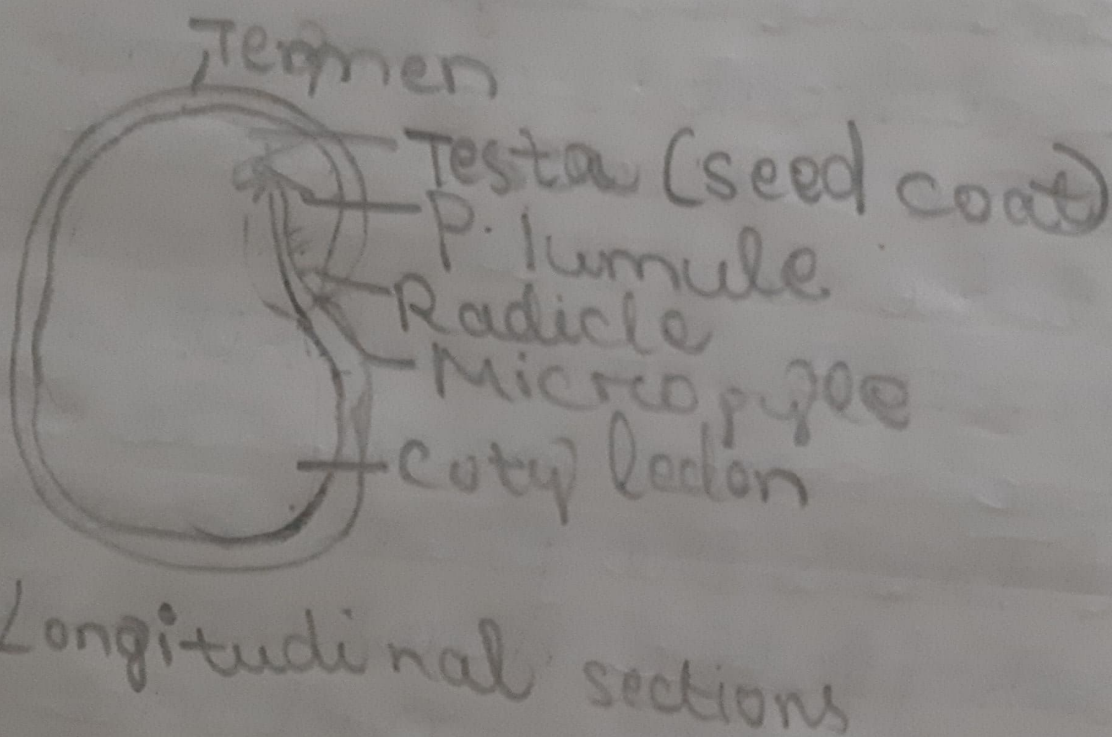 Tegmen
Testa (seed coat)
P.lumule
Radicle
Micropyle
Cotyledon
Longitudinal sections